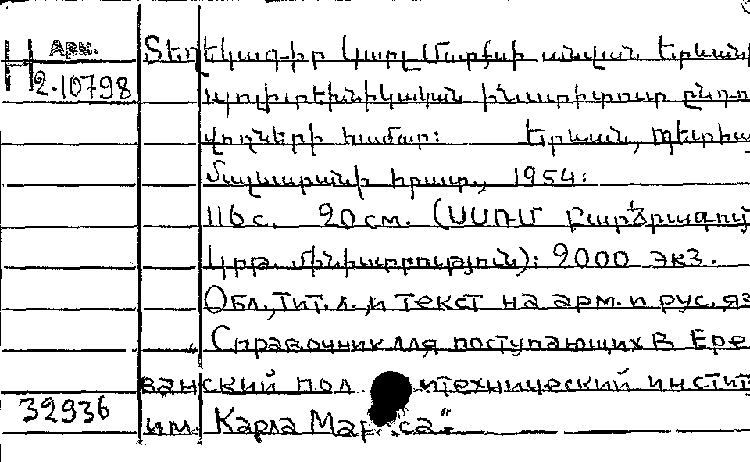 Арм.
Н 2.10798
Տեղեկագիր Կարլ Մարքսի անվան Երևանի
պոլիտեխնիկական ինստիտուտ ընդու
վողների համար։ Երևան, Պետհա
մալսարանի հրատ., 1954։
116 с. 20 см. (ՍՍՌՄ Բարձրագույ
կրթ. մինիստրություն)։ 2000 экз.
Обл., тит. л. и текст на арм. и рус. яз
„Справочник для поступающих в Ере
ванский пол итехнический инстит
32936
им. Карла Маркса“.